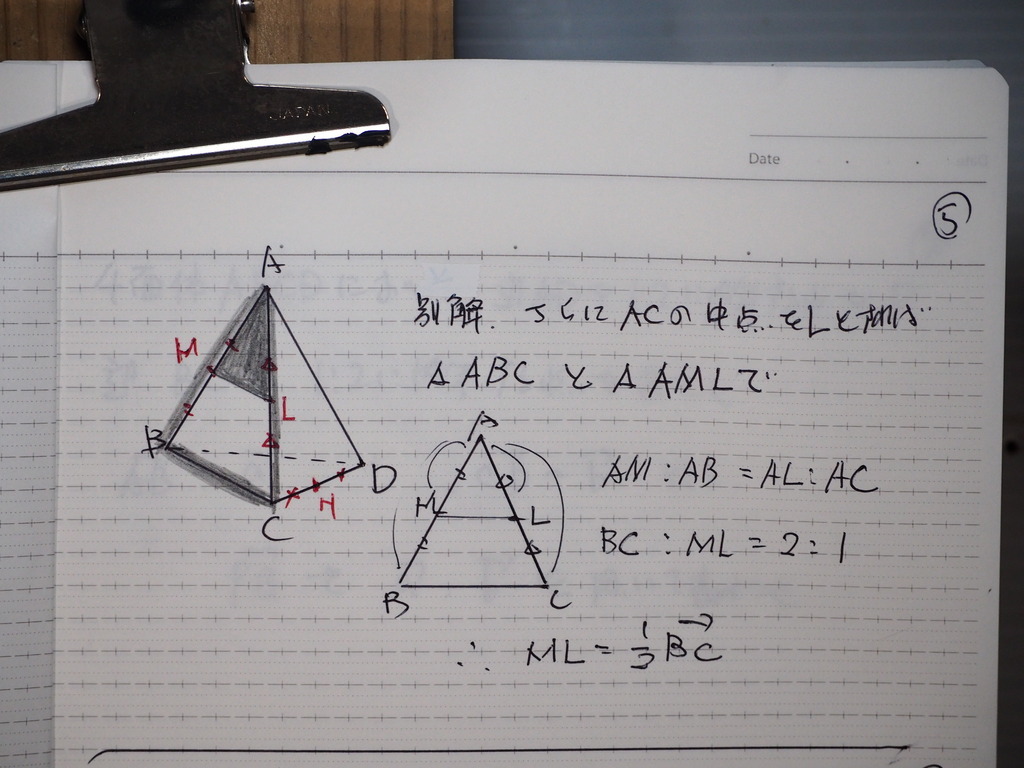 JAPAN
Date
⑤
別解. さらにACの中点をLと
△ABCと△AMLで
A
M
B
L
D
H
C
A
M
L
B
C
AM:AB = AL:AC
BC:ML = 2:1
∴ ML = 1/3 BC→